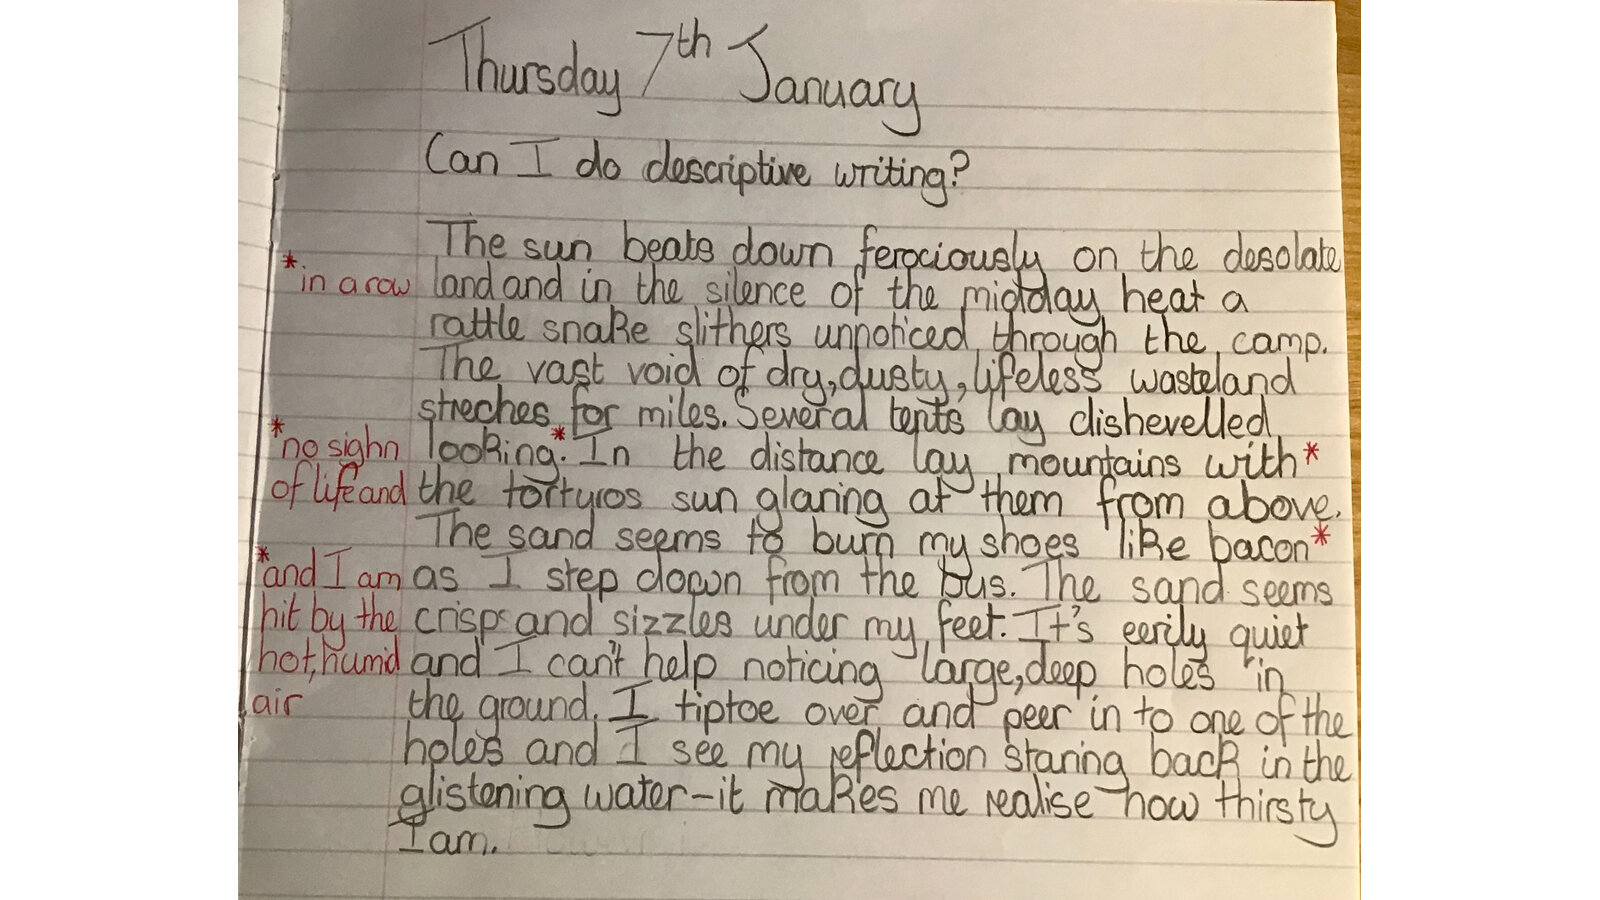 Thursday 7th January
Can I do descriptive writing?
The sun beats down ferociously on the desolate
*in a row
land and in the silence of the midday heat a
rattle snake slithers unnoticed through the camp.
The vast void of dry, dusty, lifeless wasteland
streches for miles. Several tents lay dishevelled
*no sighn
looking*. In the distance lay mountains with*
of life and
the torturos sun glaring at them from above.
The sand seems to burn my shoes like bacon*
*and I am
as I step down from the bus. The sand seems
hit by the
crisps and sizzles under my feet. It's eerily quiet
hot, humid
and I can't help noticing large, deep holes in
air
the ground. I tiptoe over and peer in to one of the
holes and I see my reflection staring back in the
glistening water-it makes me realise how thirsty
I am.